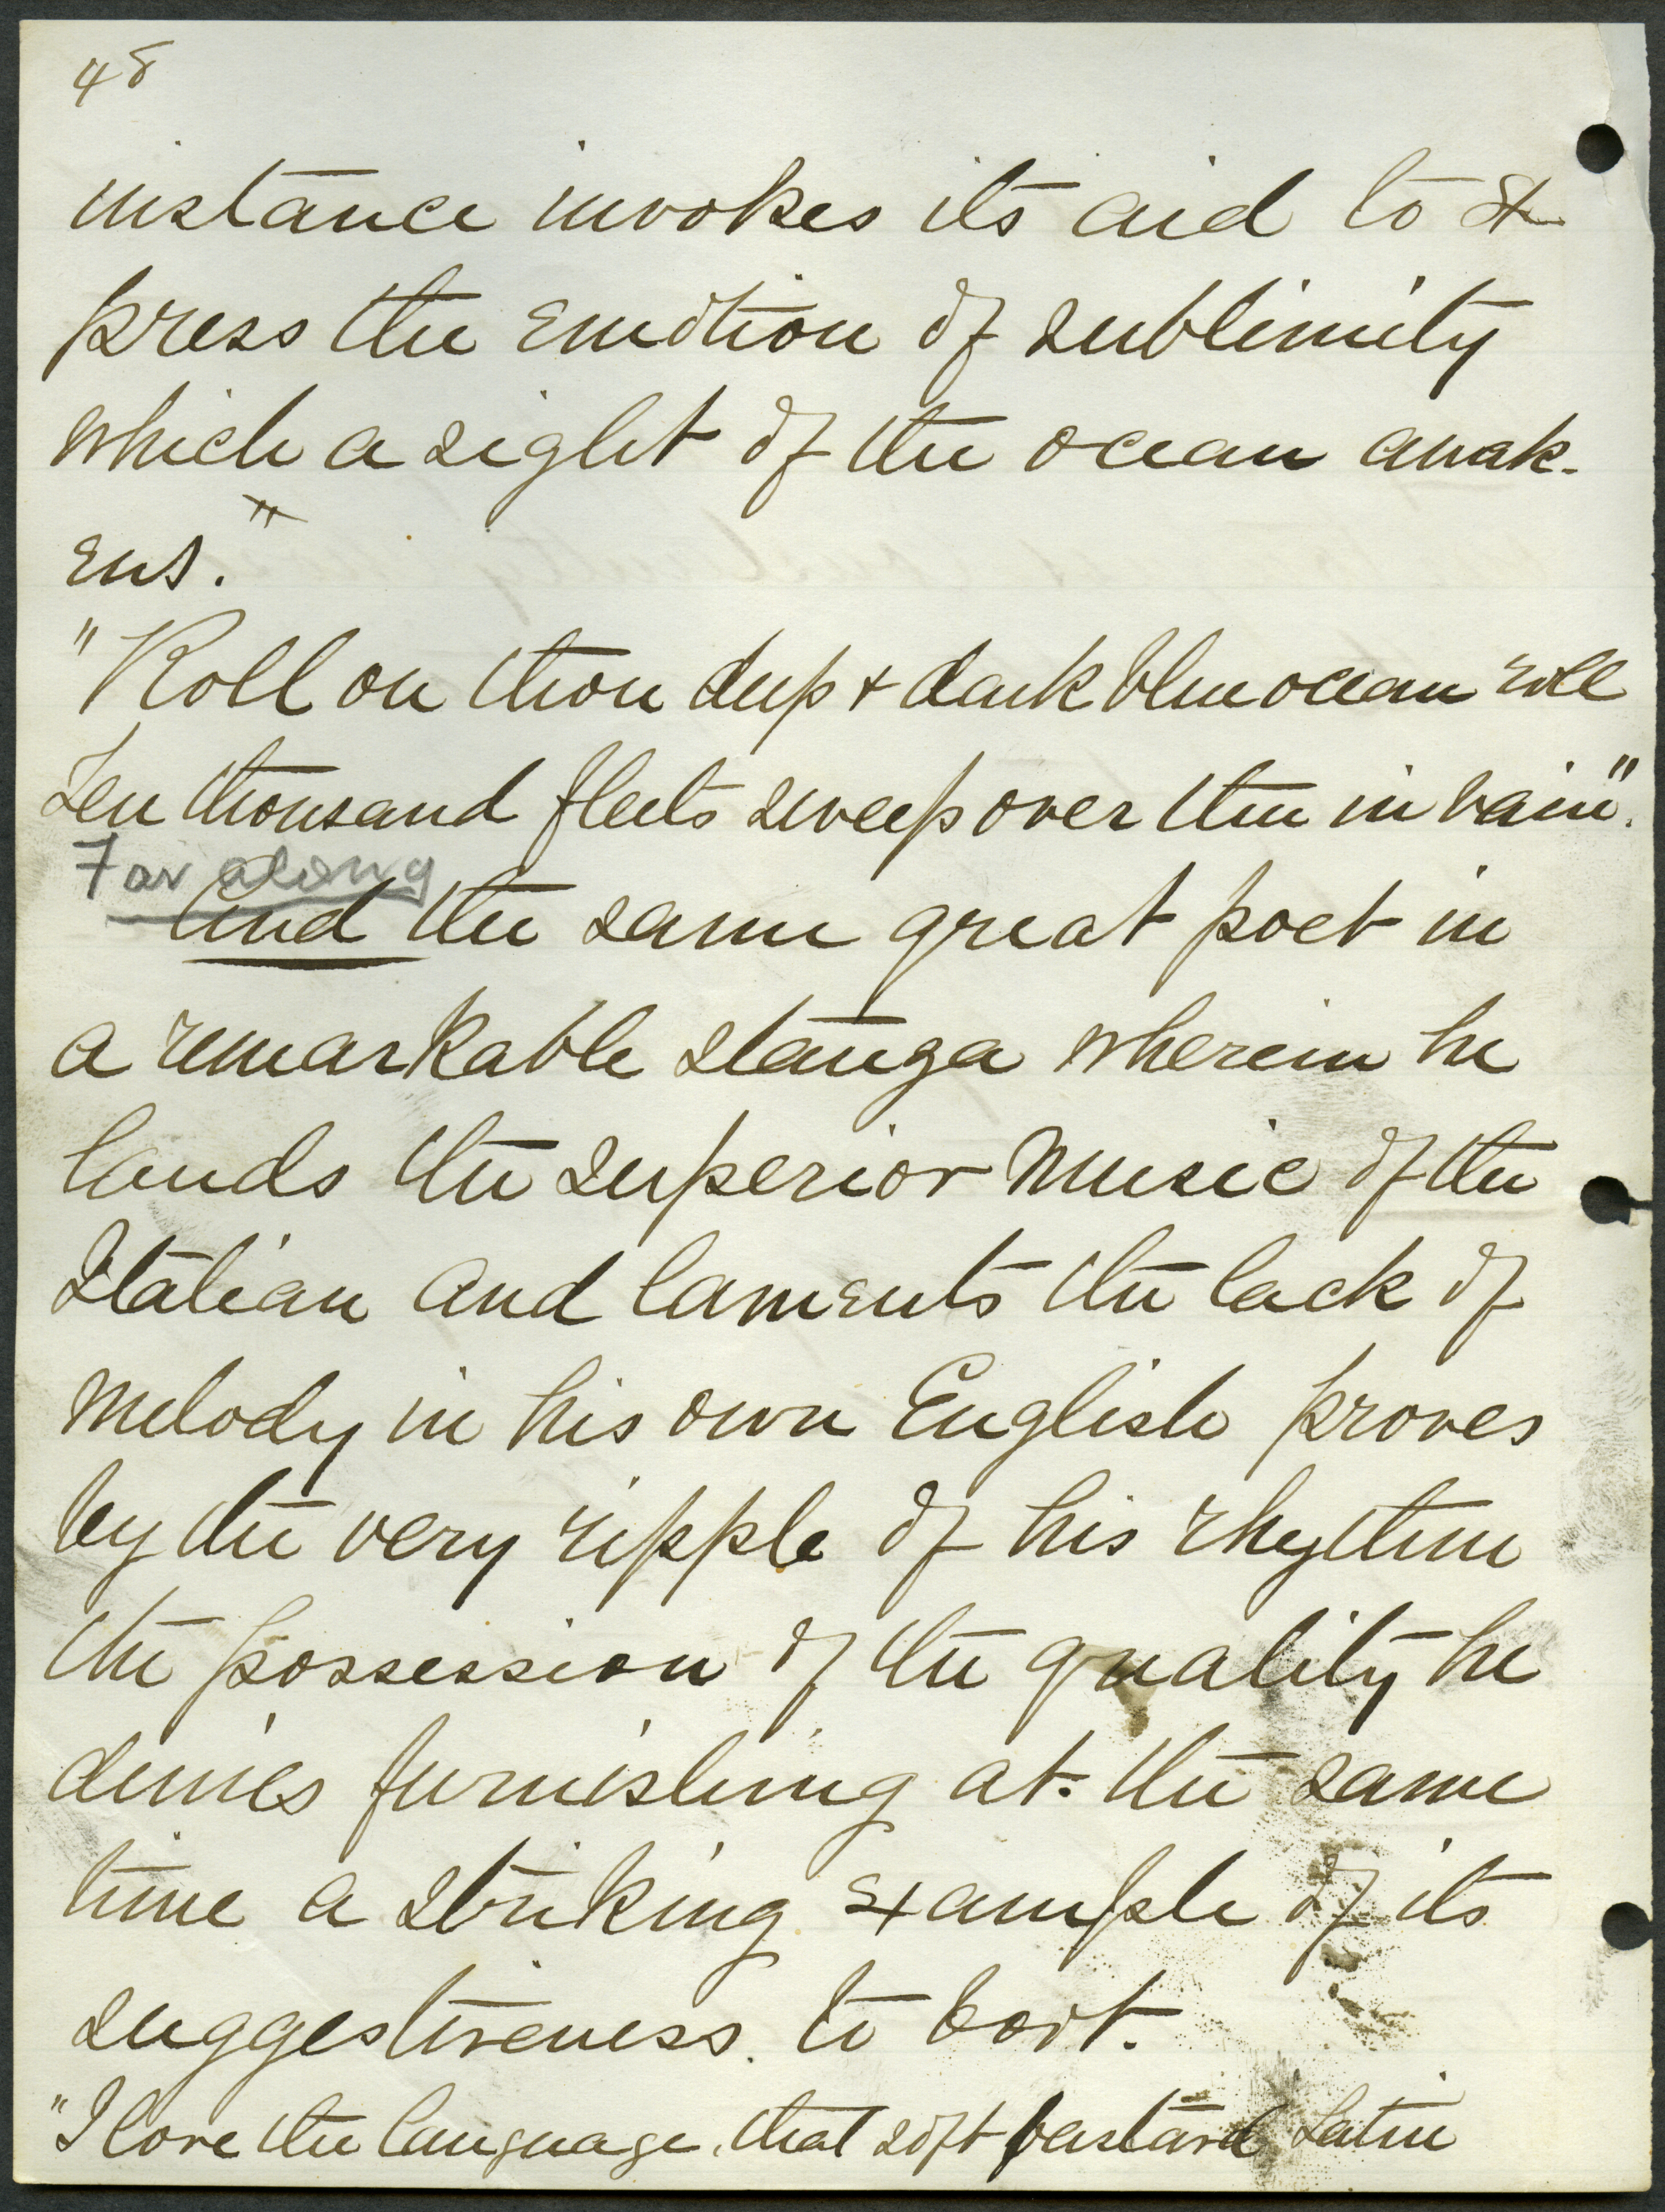 48
instance invokes its aid to ex
press the emotion of sublimity
which a sight of the ocean awak-
ens."
"Roll on thou deep + dark blue ocean roll
Ten thousand fleets sweep over thee in vain".
Far along
And the same great poet in
a remarkable stanza wherein he
lauds the superior music of the
Italian and laments the lack of
melody in his own English proves
by the very ripple of his rhythm
the possession of the quality he
denies furnishing at the same
time a striking example of its
suggestiveness. to boot.
"I love the language, that soft bastard Latin